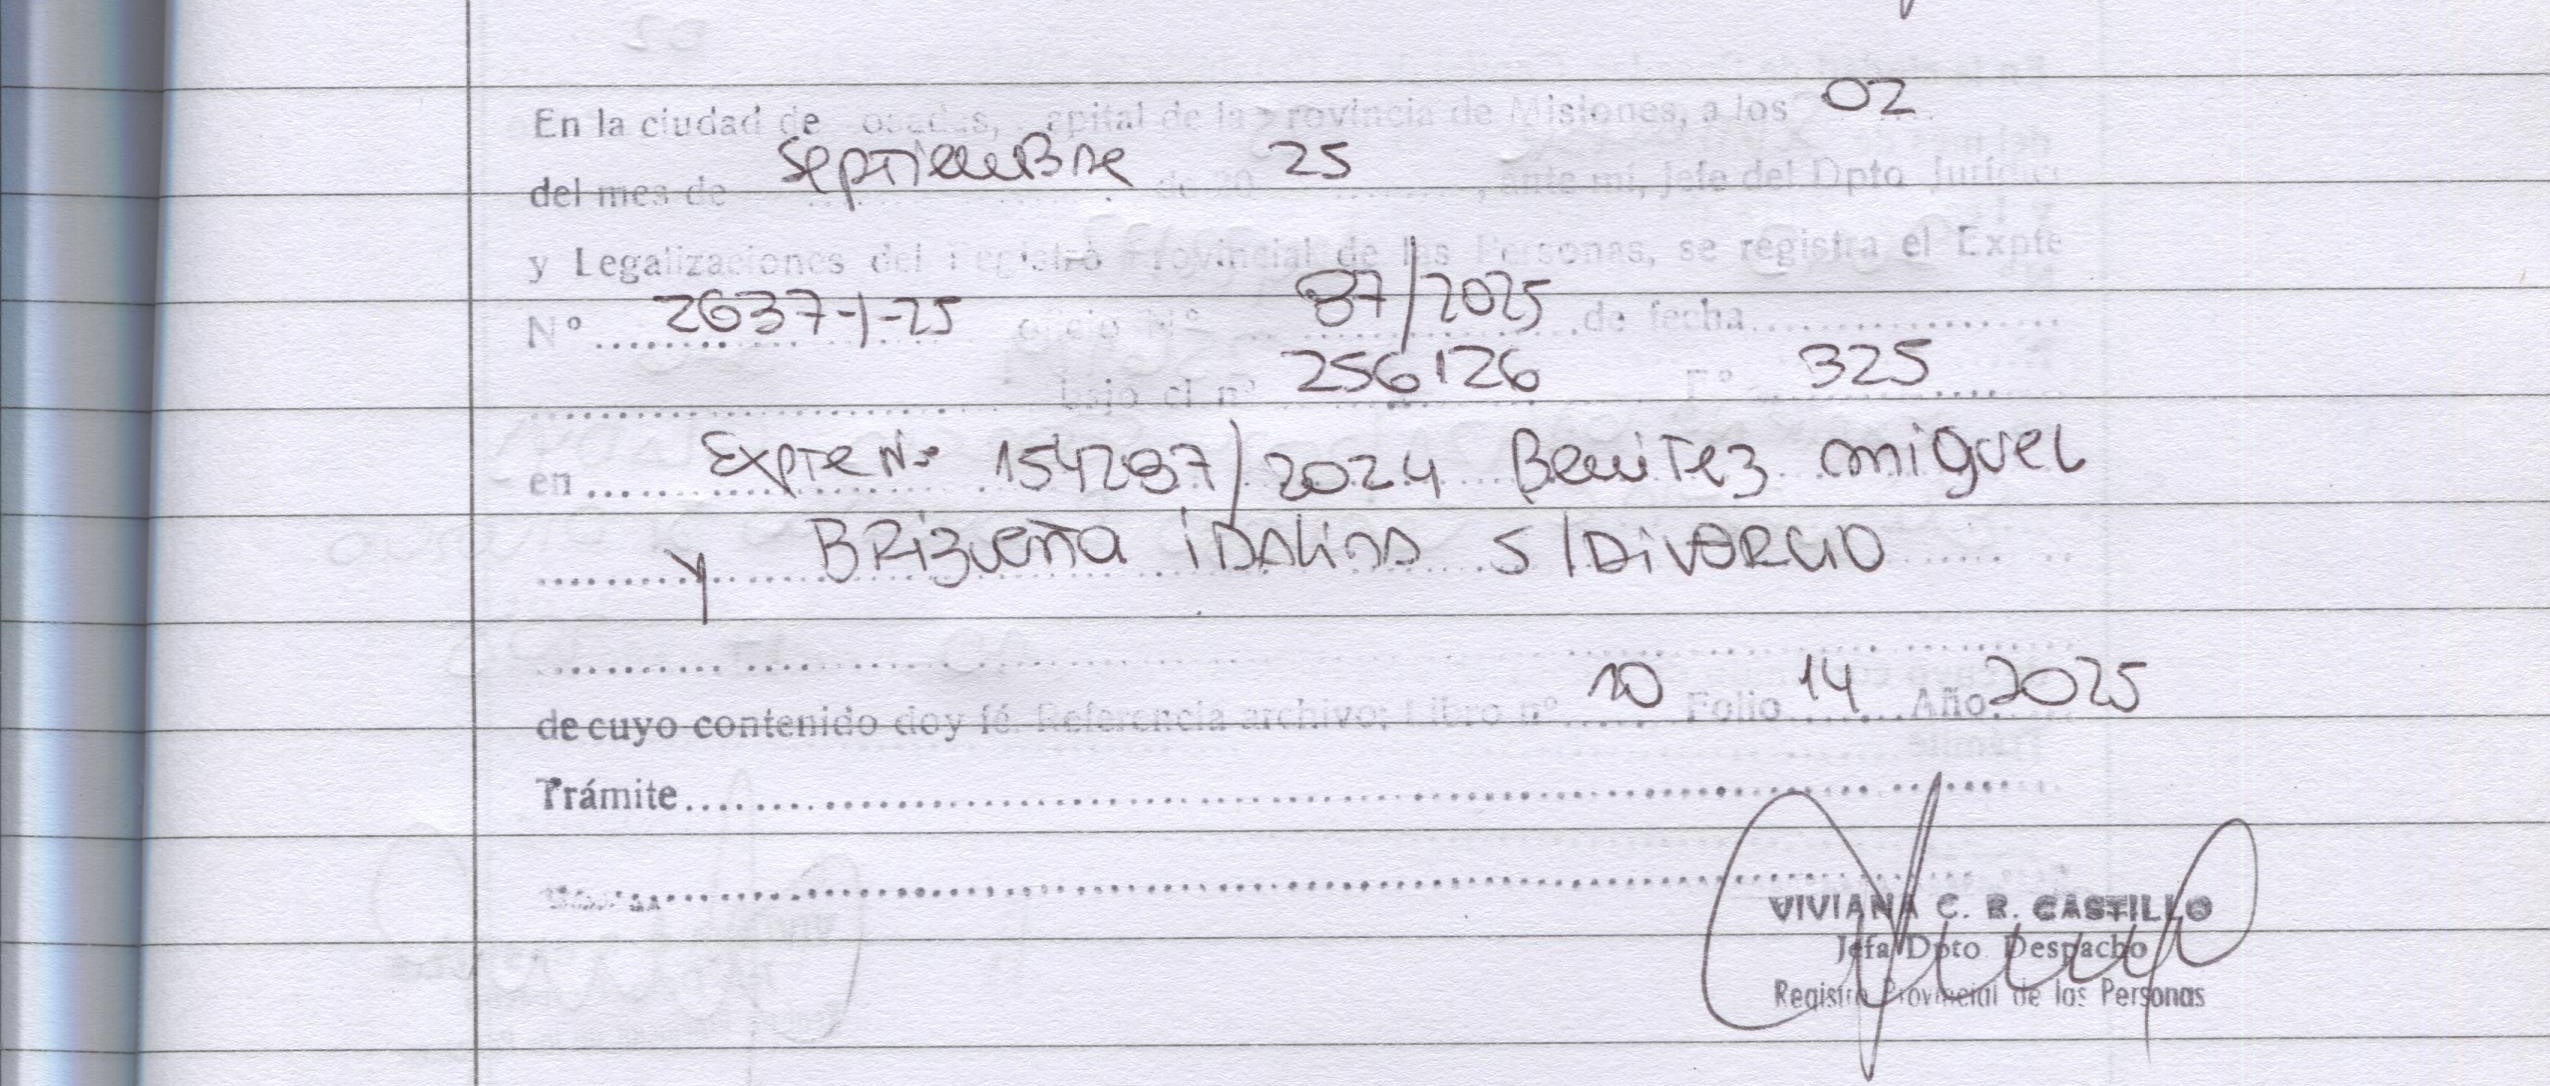 02
En la ciudad de Posadas, Capital de la Provincia de Misiones, a los
Septiembre 25
del mes de de 20 , ante mi, Jefe del Dpto Jurídico
y Legalizaciones del Registro Provincial de las Personas, se registra el Expte
Nº 2637-1-25 oficio Nº 87/2025 de fecha
bajo el nº 256126 Fº 325
en Expte Nº 154297/2024 Benitez Miguel
y BRizueña iDAlina S/DiVORCiO
de cuyo contenido doy fé. Referencia archivo: Libro nº 10 Folio 14 Año 2025
Trámite
VIVIANA C. R. CASTILLO
Jefa Dpto Despacho
Registro Provincial de las Personas